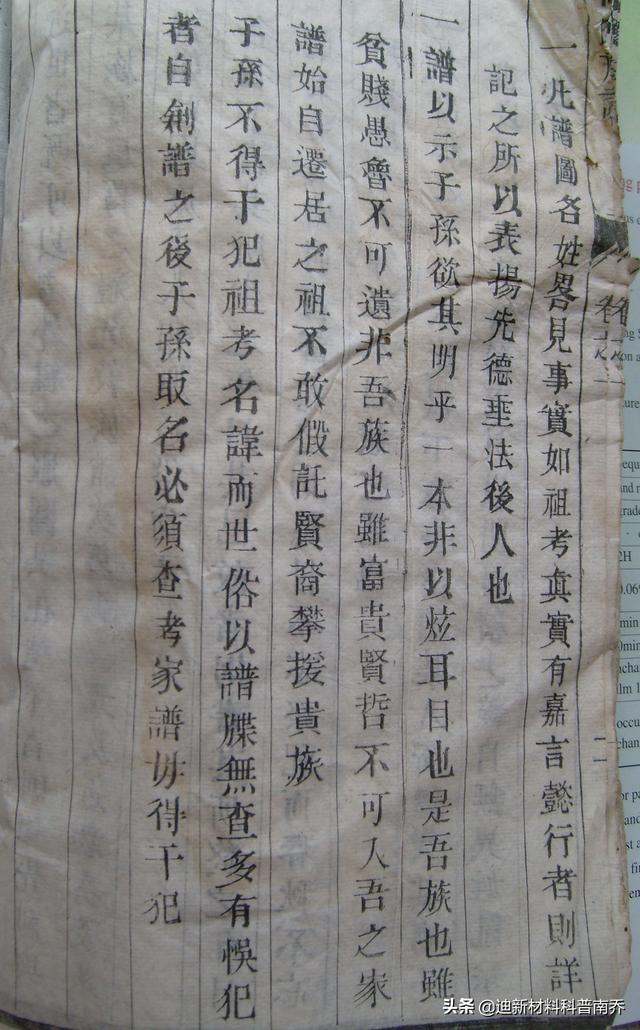 一凡譜圖各姓畧見事實如祖考真實有嘉言懿行者則詳
記之所以表揚先德垂法後人也
一譜以示子孫欲其明乎一本非以炫耳目也是吾族也雖
貧賤愚魯不可遺非吾族也雖富貴賢哲不可入吾之家
譜始自遷居之祖不敢假託賢裔攀援貴族
子孫不得干犯祖考名諱而世俗以譜牒無查多有悞犯
者自創譜之後子孫取名必須查考家譜毋得干犯
头条 @迪新材料科普南乔